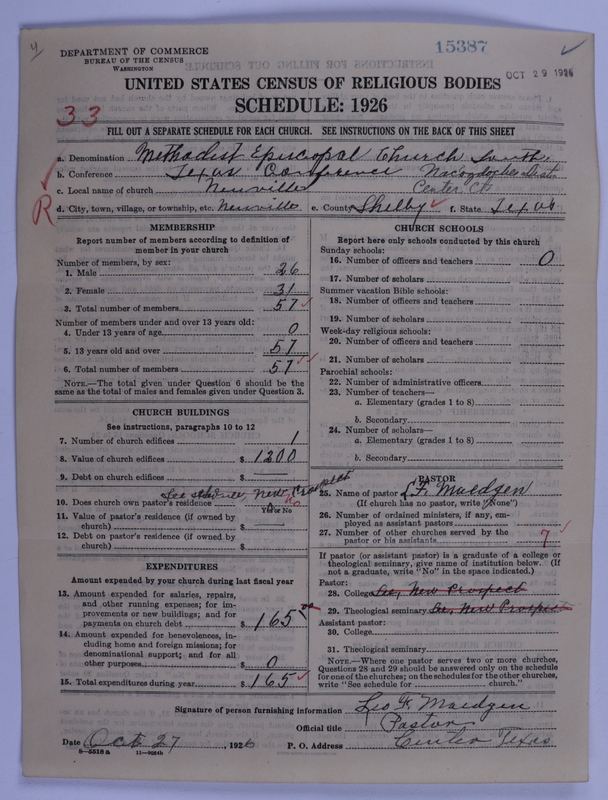 15387
DEPARTMENT OF COMMERCE
BUREAU OF THE CENSUS
WASHINGTON
OCT 29 1926
UNITED STATES CENSUS OF RELIGIOUS BODIES
SCHEDULE: 1926
33
FILL OUT A SEPARATE SCHEDULE FOR EACH CHURCH. SEE INSTRUCTIONS ON THE BACK OF THIS SHEET
a. Denomination Methodist Episcopal Church South
b. Conference Texas Conference Nacogdoches Dist
c. Local name of church Neuville Center Ct
R
d. City, town, village, or township, etc. Neuville e. County Shelby f. State Texas
MEMBERSHIP
Report number of members according to definition of
member in your church
Number of members, by sex:
1. Male 26
2. Female 31
3. Total number of members 57
Number of members under and over 13 years old:
4. Under 13 years of age 0
5. 13 years old and over 57
6. Total number of members 57
NOTE.—The total given under Question 6 should be the
same as the total of males and females given under Question 3.
CHURCH BUILDINGS
See instructions, paragraphs 10 to 12
7. Number of church edifices 1
8. Value of church edifices $ 1200
9. Debt on church edifices $
See schedule, New Prospect
10. Does church own pastor's residence no
Yes or No
11. Value of pastor's residence (if owned by
church) $
12. Debt on pastor's residence (if owned by
church) $
EXPENDITURES
Amount expended by your church during last fiscal year
13. Amount expended for salaries, repairs,
and other running expenses; for im-
provements or new buildings; and for
payments on church debt $ 165 00
14. Amount expended for benevolences, in-
cluding home and foreign missions; for
denominational support; and for all
other purposes $ 0
15. Total expenditures during year $ 165
CHURCH SCHOOLS
Report here only schools conducted by this church
Sunday schools:
16. Number of officers and teachers 0
17. Number of scholars
Summer vacation Bible schools:
18. Number of officers and teachers
19. Number of scholars
Week-day religious schools:
20. Number of officers and teachers
21. Number of scholars
Parochial schools:
22. Number of administrative officers
23. Number of teachers—
a. Elementary (grades 1 to 8)
b. Secondary
24. Number of scholars—
a. Elementary (grades 1 to 8)
b. Secondary
PASTOR
25. Name of pastor L. F. Maedgen
(If church has no pastor, write "None")
26. Number of ordained ministers, if any, em-
ployed as assistant pastors
27. Number of other churches served by the
pastor or his assistants 7
If pastor (or assistant pastor) is a graduate of a college or
theological seminary, give name of institution below. (If
not a graduate, write "No" in the space indicated.)
Pastor:
28. College See, New Prospect
29. Theological seminary See, New Prospect
Assistant pastor:
30. College
31. Theological seminary
NOTE.—Where one pastor serves two or more churches,
Questions 28 and 29 should be answered only on the schedule
for one of the churches; on the schedules for the other churches,
write "See schedule for church."
Signature of person furnishing information Leo F. Maedgen
Official title Pastor
Date Oct 27, 1926 P. O. Address Center Texas